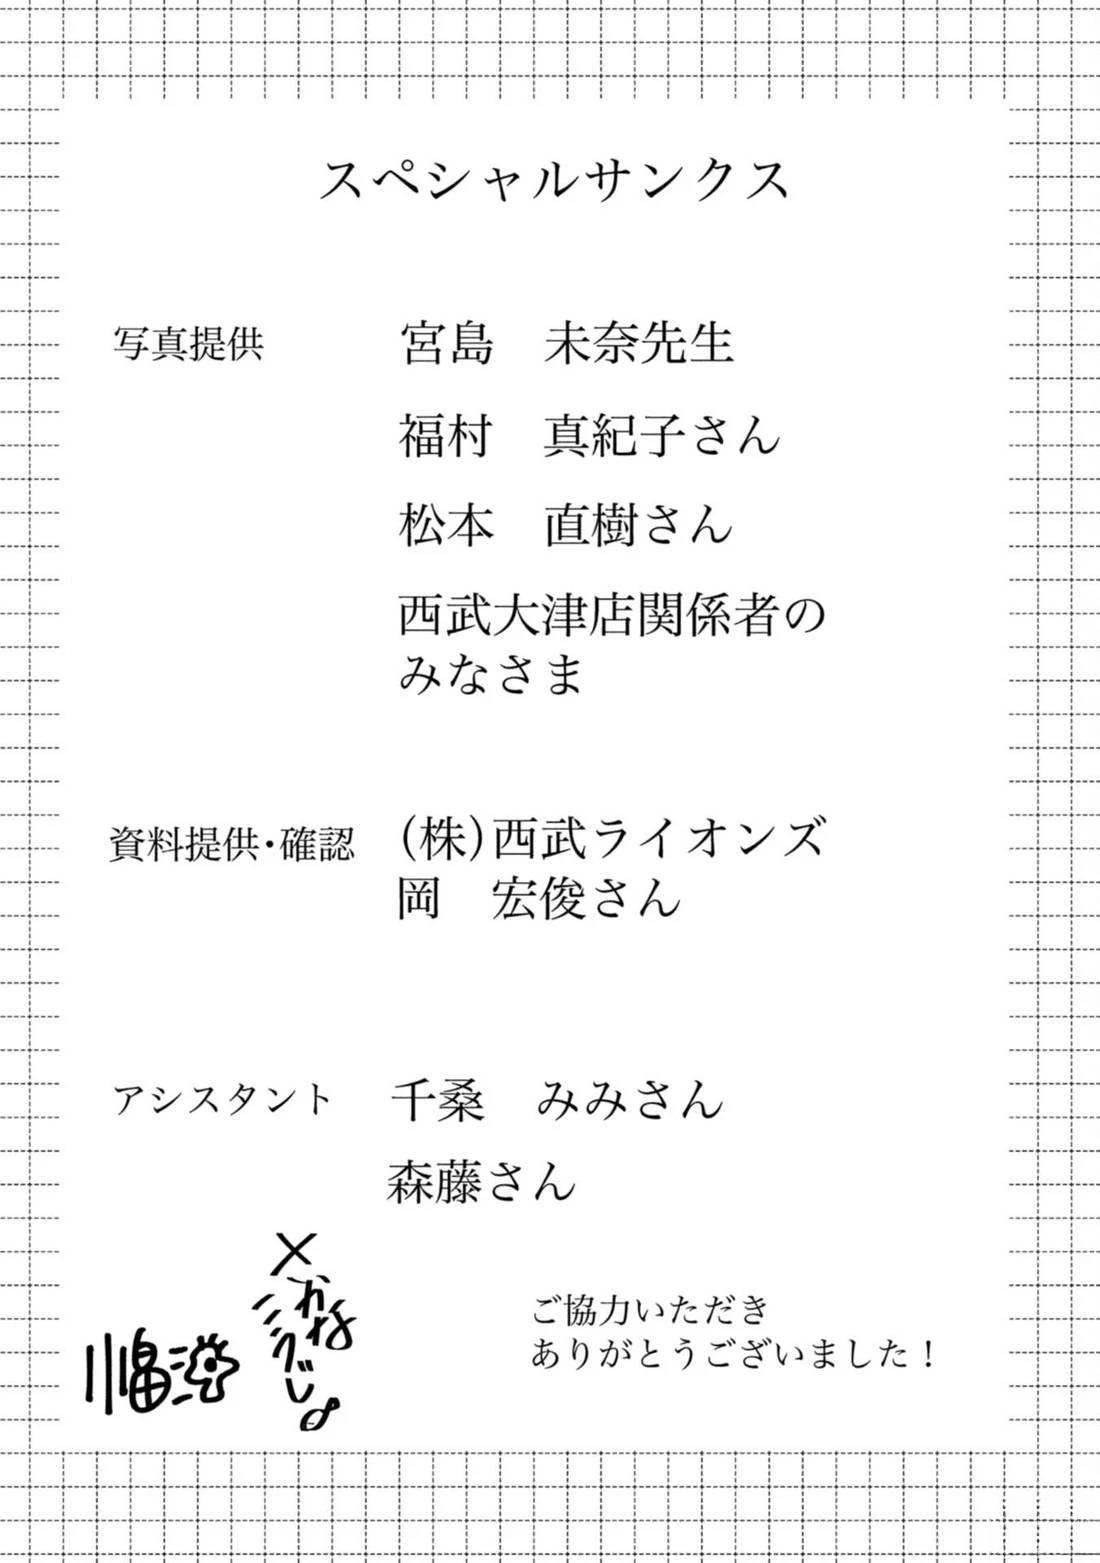 スペシャルサンクス
写真提供
宮島　未奈先生
福村　真紀子さん
松本　直樹さん
西武大津店関係者の
みなさま
資料提供・確認
(株)西武ライオンズ
岡　宏俊さん
アシスタント
千桑　みみさん
森藤さん
ご協力いただき
ありがとうございました！